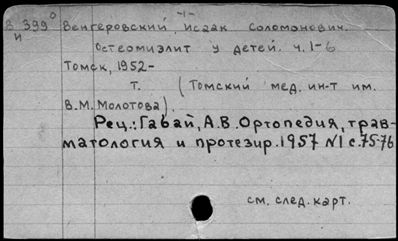 -1-
В 399⁰ Венгеровский, Исаак Соломонович.
И Остеомиэлит у детей. ч. 1-6
Томск, 1952-
т. (Томский мед. ин-т им.
В.М. Молотова).
Рец.: Габай, А.В. Ортопедия, трав-
матология и протезир. 1957 №1 с.75-76
см. след. карт.